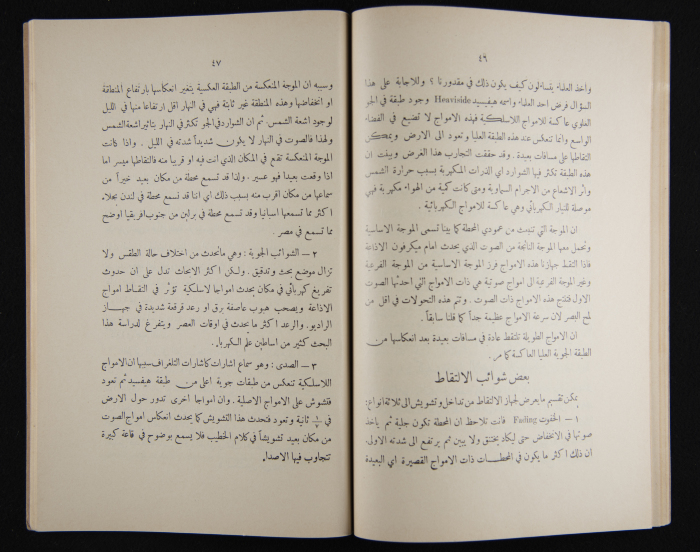 ٤٦
واخذ العلماء يتساءلون كيف يكون ذلك في مقدورنا ؟ وللاجابة على هذا
السؤال فرض احد العلماء واسمه هيفسيد Heaviside وجود طبقة في الجو
العلوي عاكسة للامواج اللاسلكية فهذه الامواج لا تضيع في الفضاء
الواسع وانما تنعكس عند هذه الطبقة العليا وتعود الى الارض ويمكن
التقاطها على مسافات بعيدة . وقد حققت التجارب هذا الغرض وبينت ان
هذه الطبقة تكثر فيها الشوارد اي الذرات المكهربة بسبب حرارة الشمس
واثر الاشعاع من الاجرام السماوية ومتى كانت كمية من الهواء مكهربة فهي
موصلة للتيار الكهربائي وهي عاكسة للامواج الكهربائية .
ان الموجة التي تنبعث من عمودي المحطة كما بينا تسمى الموجة الاساسية
وتحمل معها الموجة الناتجة من الصوت الذي يحدث امام ميكرفون الاذاعة
فاذا التقط جهازنا هذه الامواج فرز الموجة الاساسية من الموجة الفرعية
وغير الموجة الفرعية الى امواج صوتية هي ذات الامواج التي احدثها الصوت
الاول فتنتج هذه الامواج ذات الصوت . وتتم هذه التحولات في اقل من
لمح البصر لان سرعة الامواج عظيمة جداً كما قلنا سابقاً .
ان الامواج الطويلة تلتقط عادة في مسافات بعيدة بعد انعكاسها من
الطبقة الجوية العليا العاكسة كما مر .
بعض شوائب الالتقاط
يمكن تقسيم ما يعرض لجهاز الالتقاط من تداخل وتشويش الى ثلاثة انواع :
١ – الخفوت Fading فانت تلاحظ ان المحطة تكون جلية ثم ياخذ
صوتها في الانخفاض حتى ليكاد يختنق ولا يبين ثم يرتفع الى شدته الاولى .
ان ذلك اكثر ما يكون في المحطات ذات الامواج القصيرة اي البعيدة
٤٧
وسببه ان الموجة المنعكسة من الطبقة العكسية يتغير انعكاسها بارتفاع المنطقة
او انخفاضها وهذه المنطقة غير ثابتة فهي في النهار اقل ارتفاعا منها في الليل
لوجود اشعة الشمس . ثم ان الشوارد في الجو تكثر في النهار بتاثير اشعة الشمس
ولهذا فالصوت في النهار لا يكون شديداً شدته في الليل . واذا كانت
الموجة المنعكسة تقع في المكان الذي انت فيه او قريبا منه فالتقاطها ميسر اما
اذا وقعت بعيدا فهو عسير . ولذا قد تسمع محطة من مكان بعيد خيراً من
سماعها من مكان اقرب منه بسبب ذلك اي اننا قد نسمع محطة في لندن بجلاء
اكثر مما تسمعها اسبانيا وقد تسمع محطة في برلين من جنوب افريقيا اوضح
مما تسمع في مصر .
٢ – الشوائب الجوية : وهي ما تحدث من اختلاف حالة الطقس ولا
تزال موضع بحث وتدقيق . ولكن اكثر الابحاث تدل على ان حدوث
تفريغ كهربائي في مكان يحدث امواجا لاسلكية تؤثر في التقاط امواج
الاذاعة ويصحب هبوب عاصفة برق او رعد قرقعة شديدة في جهاز
الراديو . والرعد اكثر ما يحدث في اوقات العصر ويتفرغ لدراسة هذا
البحث كثير من اساطين علم الكهرباء .
٣ – الصدى : وهو سماع اشارات كاشارات التلغراف سببها ان الامواج
اللاسلكية تنعكس من طبقات جوية اعلى من طبقة هيفسيد ثم تعود
فتشوش على الامواج الاصلية . وان امواجا اخرى تدور حول الارض
في ثانية وتعود فتحدث هذا التشويش كما يحدث انعكاس امواج الصوت
من مكان بعيد تشويشاً في كلام الخطيب فلا يسمع بوضوح في قاعة كبيرة
تتجاوب فيها الاصداء .